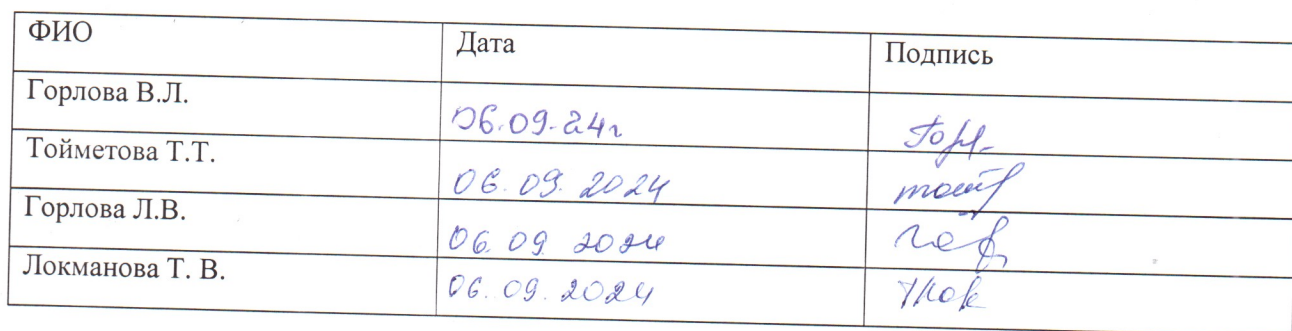 ФИО Дата Подпись
Горлова В.Л. 06.09.24г
Тойметова Т.Т. 06.09.2024
Горлова Л.В. 06.09.2024
Локманова Т. В. 06.09.2024